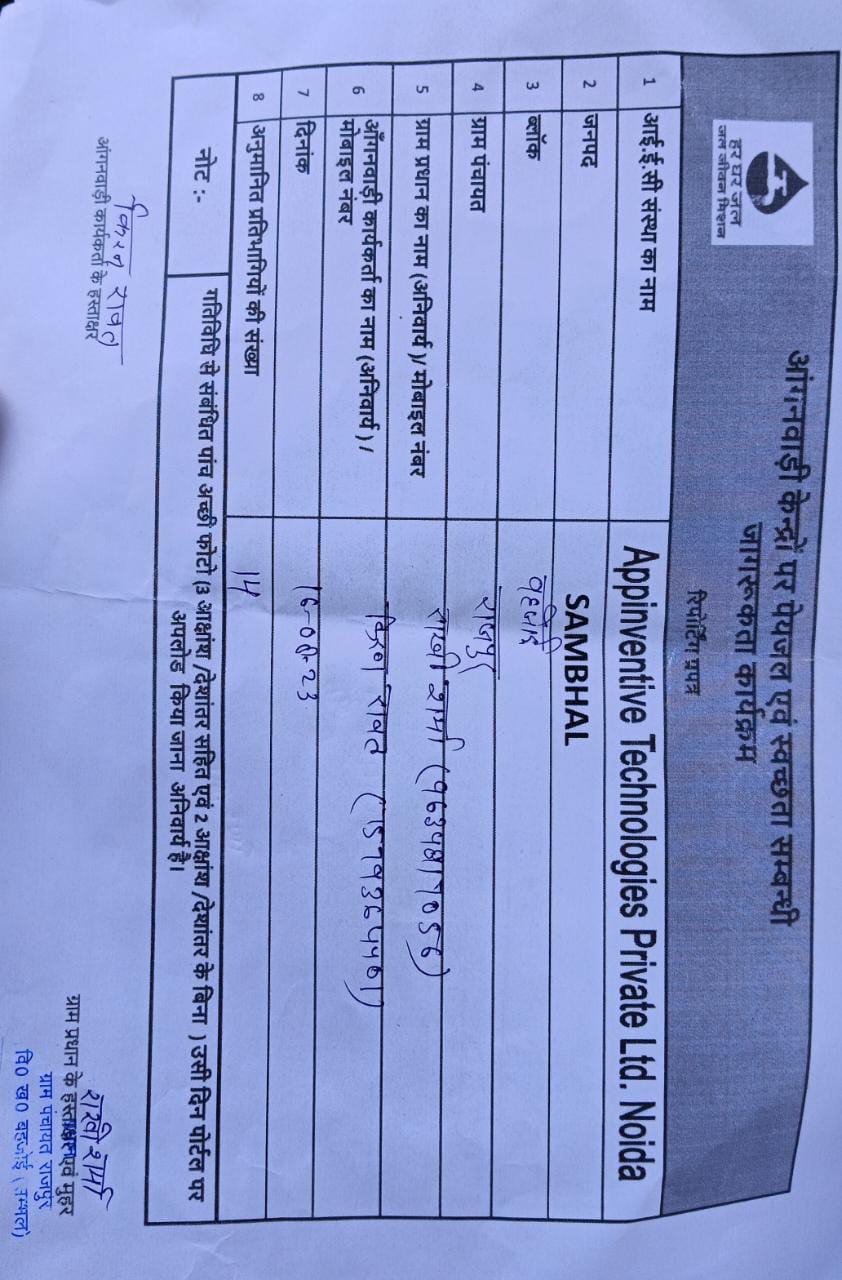 हर घर जल
जल जीवन मिशन
आंगनवाड़ी केन्द्रों पर पेयजल एवं स्वच्छता सम्बन्धी
जागरूकता कार्यक्रम
रिपोर्टिंग प्रपत्र
1 आई.ई.सी संस्था का नाम Appinventive Technologies Private Ltd. Noida
2 जनपद SAMBHAL
3 ब्लॉक
4 ग्राम पंचायत राजपुर
5 ग्राम प्रधान का नाम (अनिवार्य )/ मोबाइल नंबर राखी शर्मा
6 आँगनवाड़ी कार्यकर्ता का नाम (अनिवार्य ) /
मोबाइल नंबर किरण रावत
7 दिनांक 16-08-23
8 अनुमानित प्रतिभागियों की संख्या 14
नोट :- गतिविधि से संबंधित पांच अच्छी फोटो (3 आक्षांश /देशांतर सहित एवं 2 आक्षांश /देशांतर के बिना ) उसी दिन पोर्टल पर
अपलोड किया जाना अनिवार्य है।
किरन रावत
आंगनवाड़ी कार्यकर्ता के हस्ताक्षर
राखी शर्मा
ग्राम प्रधान के हस्ताक्षर एवं मुहर
ग्राम पंचायत राजपुर
वि0 ख0 बहजोई (सम्भल)